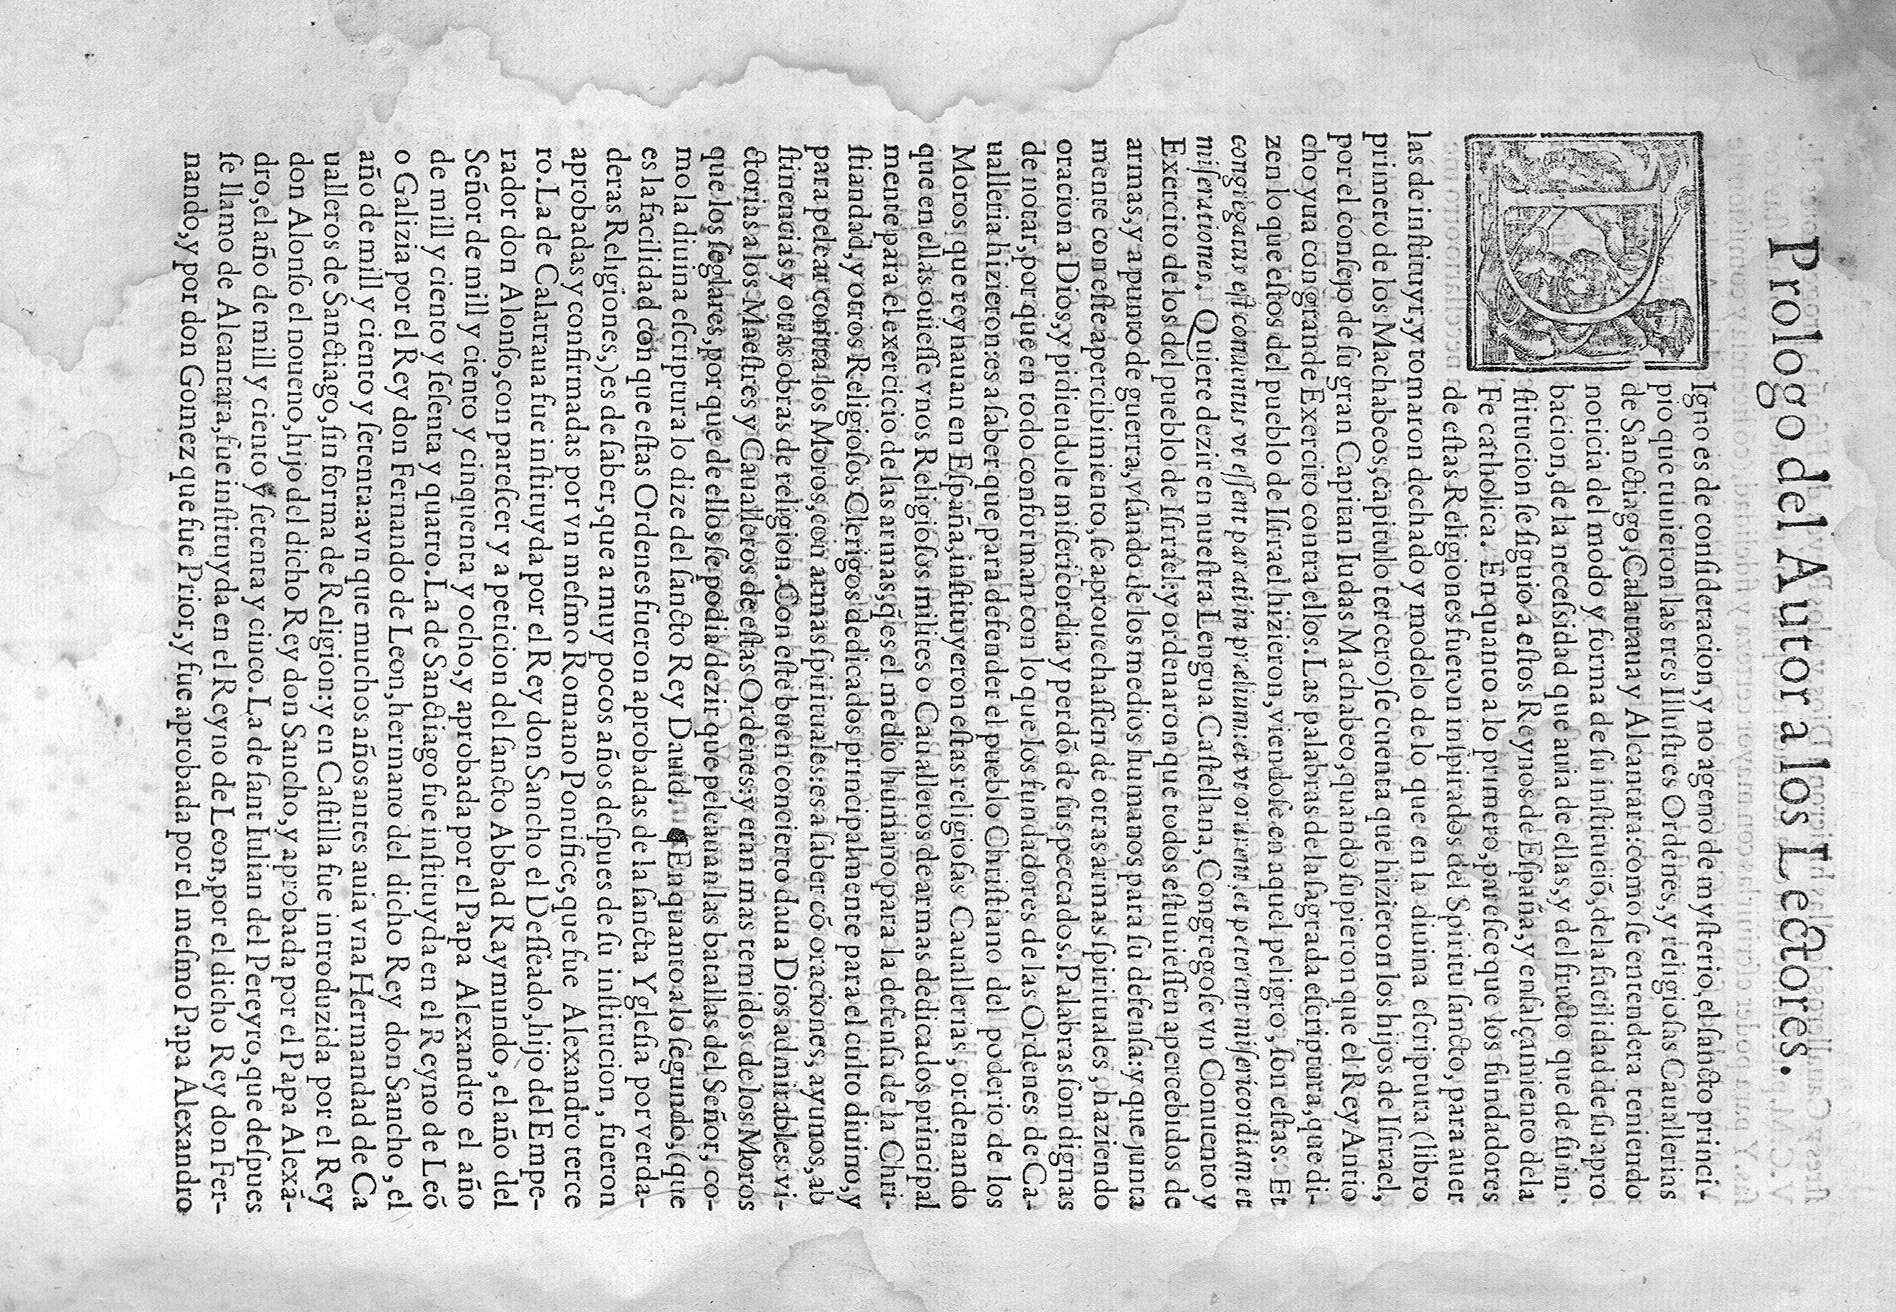 Prologo del Autor a los Lectores.
DIgno es de consideracion, y no ageno de mysterio, el sancto princi-
pio que tuuieron las tres Illustres Ordenes, y religiosas Cauallerias
de Sanctiago, Calatraua y Alcantara: como se entendera teniendo
noticia del modo y forma de su institució, de la facilidad de su apro
bacion, de la necessidad que auia de ellas, y del fructo que de su in-
stitucion se siguio a estos Reynos de España, y ensalçamiento de la
Fe catholica. En quanto a lo primero, paresce que los fundadores
de estas Religiones fueron inspirados del Spiritu sancto, para auer
las de instituyr, y tomaron dechado y modelo de lo que en la diuina escriptura (libro
primero de los Machabeos, capitulo tercero) se cuenta que hizieron los hijos de Israel,
por el consejo de su gran Capitan Iudas Machabeo, quando supieron que el Rey Antio
cho yua con grande Exercito contra ellos. Las palabras de la sagrada escriptura, que di-
zen lo que estos del pueblo de Israel hizieron, viendose en aquel peligro, son estas: Et
congregatus est conuentus vt essent parati in prælium: et vt orarent, et peterent misericordiam et
miserationes. Quiere dezir en nuestra Lengua Castellana, Congregose vn Conuento y
Exercito de los del pueblo de Israel: y ordenaron que todos estuuiessen apercebidos de
armas, y a punto de guerra, vsando de los medios humanos para su defensa: y que junta
mente con este apercibimiento, se aprouechassen de otras armas spirituales, haziendo
oracion a Dios, y pidiendole misericordia y perdõ de sus peccados. Palabras son dignas
de notar, por que en todo conforman con lo que los fundadores de las Ordenes de Ca-
ualleria hizieron: es a saber que para defender el pueblo Christiano del poderio de los
Moros que reynauan en España, instituyeron estas religiosas Cauallerias, ordenando
que en ellas ouiesse vnos Religiosos milites o Caualleros de armas dedicados principal
mente para el exercicio de las armas, q̃ es el medio humano para la defensa de la Chri-
stiandad, y otros Religiosos Clerigos dedicados principalmente para el culto diuino, y
para pelear contra los Moros, con armas spirituales: es a saber cõ oraciones, ayunos, ab
stinencias y otras obras de religion. Con este buen concierto daua Dios admirables vi-
ctorias a los Maestres y Caualleros de estas Ordenes: y eran mas temidos de los Moros
que los seglares, por que de ellos se podia dezir que peleauan las batallas del Señor, co-
mo la diuina escriptura lo dize del sancto Rey Dauid. ¶ En quanto a lo segundo, (que
es la facilidad con que estas Ordenes fueron aprobadas de la sancta Yglesia por verda-
deras Religiones,) es de saber, que a muy pocos años despues de su institucion, fueron
aprobadas y confirmadas por vn mesmo Romano Pontifice, que fue Alexandro terce
ro. La de Calatraua fue instituyda por el Rey don Sancho el Desseado, hijo del Empe-
rador don Alonso, con parescer y a peticion del sancto Abbad Raymundo, el año del
Señor de mill y ciento y cinquenta y ocho, y aprobada por el Papa Alexandro el año
de mill y ciento y sesenta y quatro. La de Sanctiago fue instituyda en el Reyno de Leõ
o Galizia por el Rey don Fernando de Leon, hermano del dicho Rey don Sancho, el
año de mill y ciento y setenta: avn que muchos años antes auia vna Hermandad de Ca
ualleros de Sanctiago, sin forma de Religion: y en Castilla fue introduzida por el Rey
don Alonso el noueno, hijo del dicho Rey don Sancho, y aprobada por el Papa Alexã-
dro, el año de mill y ciento y setenta y cinco. La de sant Iulian del Pereyro, que despues
se llamo de Alcantara, fue instituyda en el Reyno de Leon, por el dicho Rey don Fer-
nando, y por don Gomez que fue Prior, y fue aprobada por el mesmo Papa Alexandro